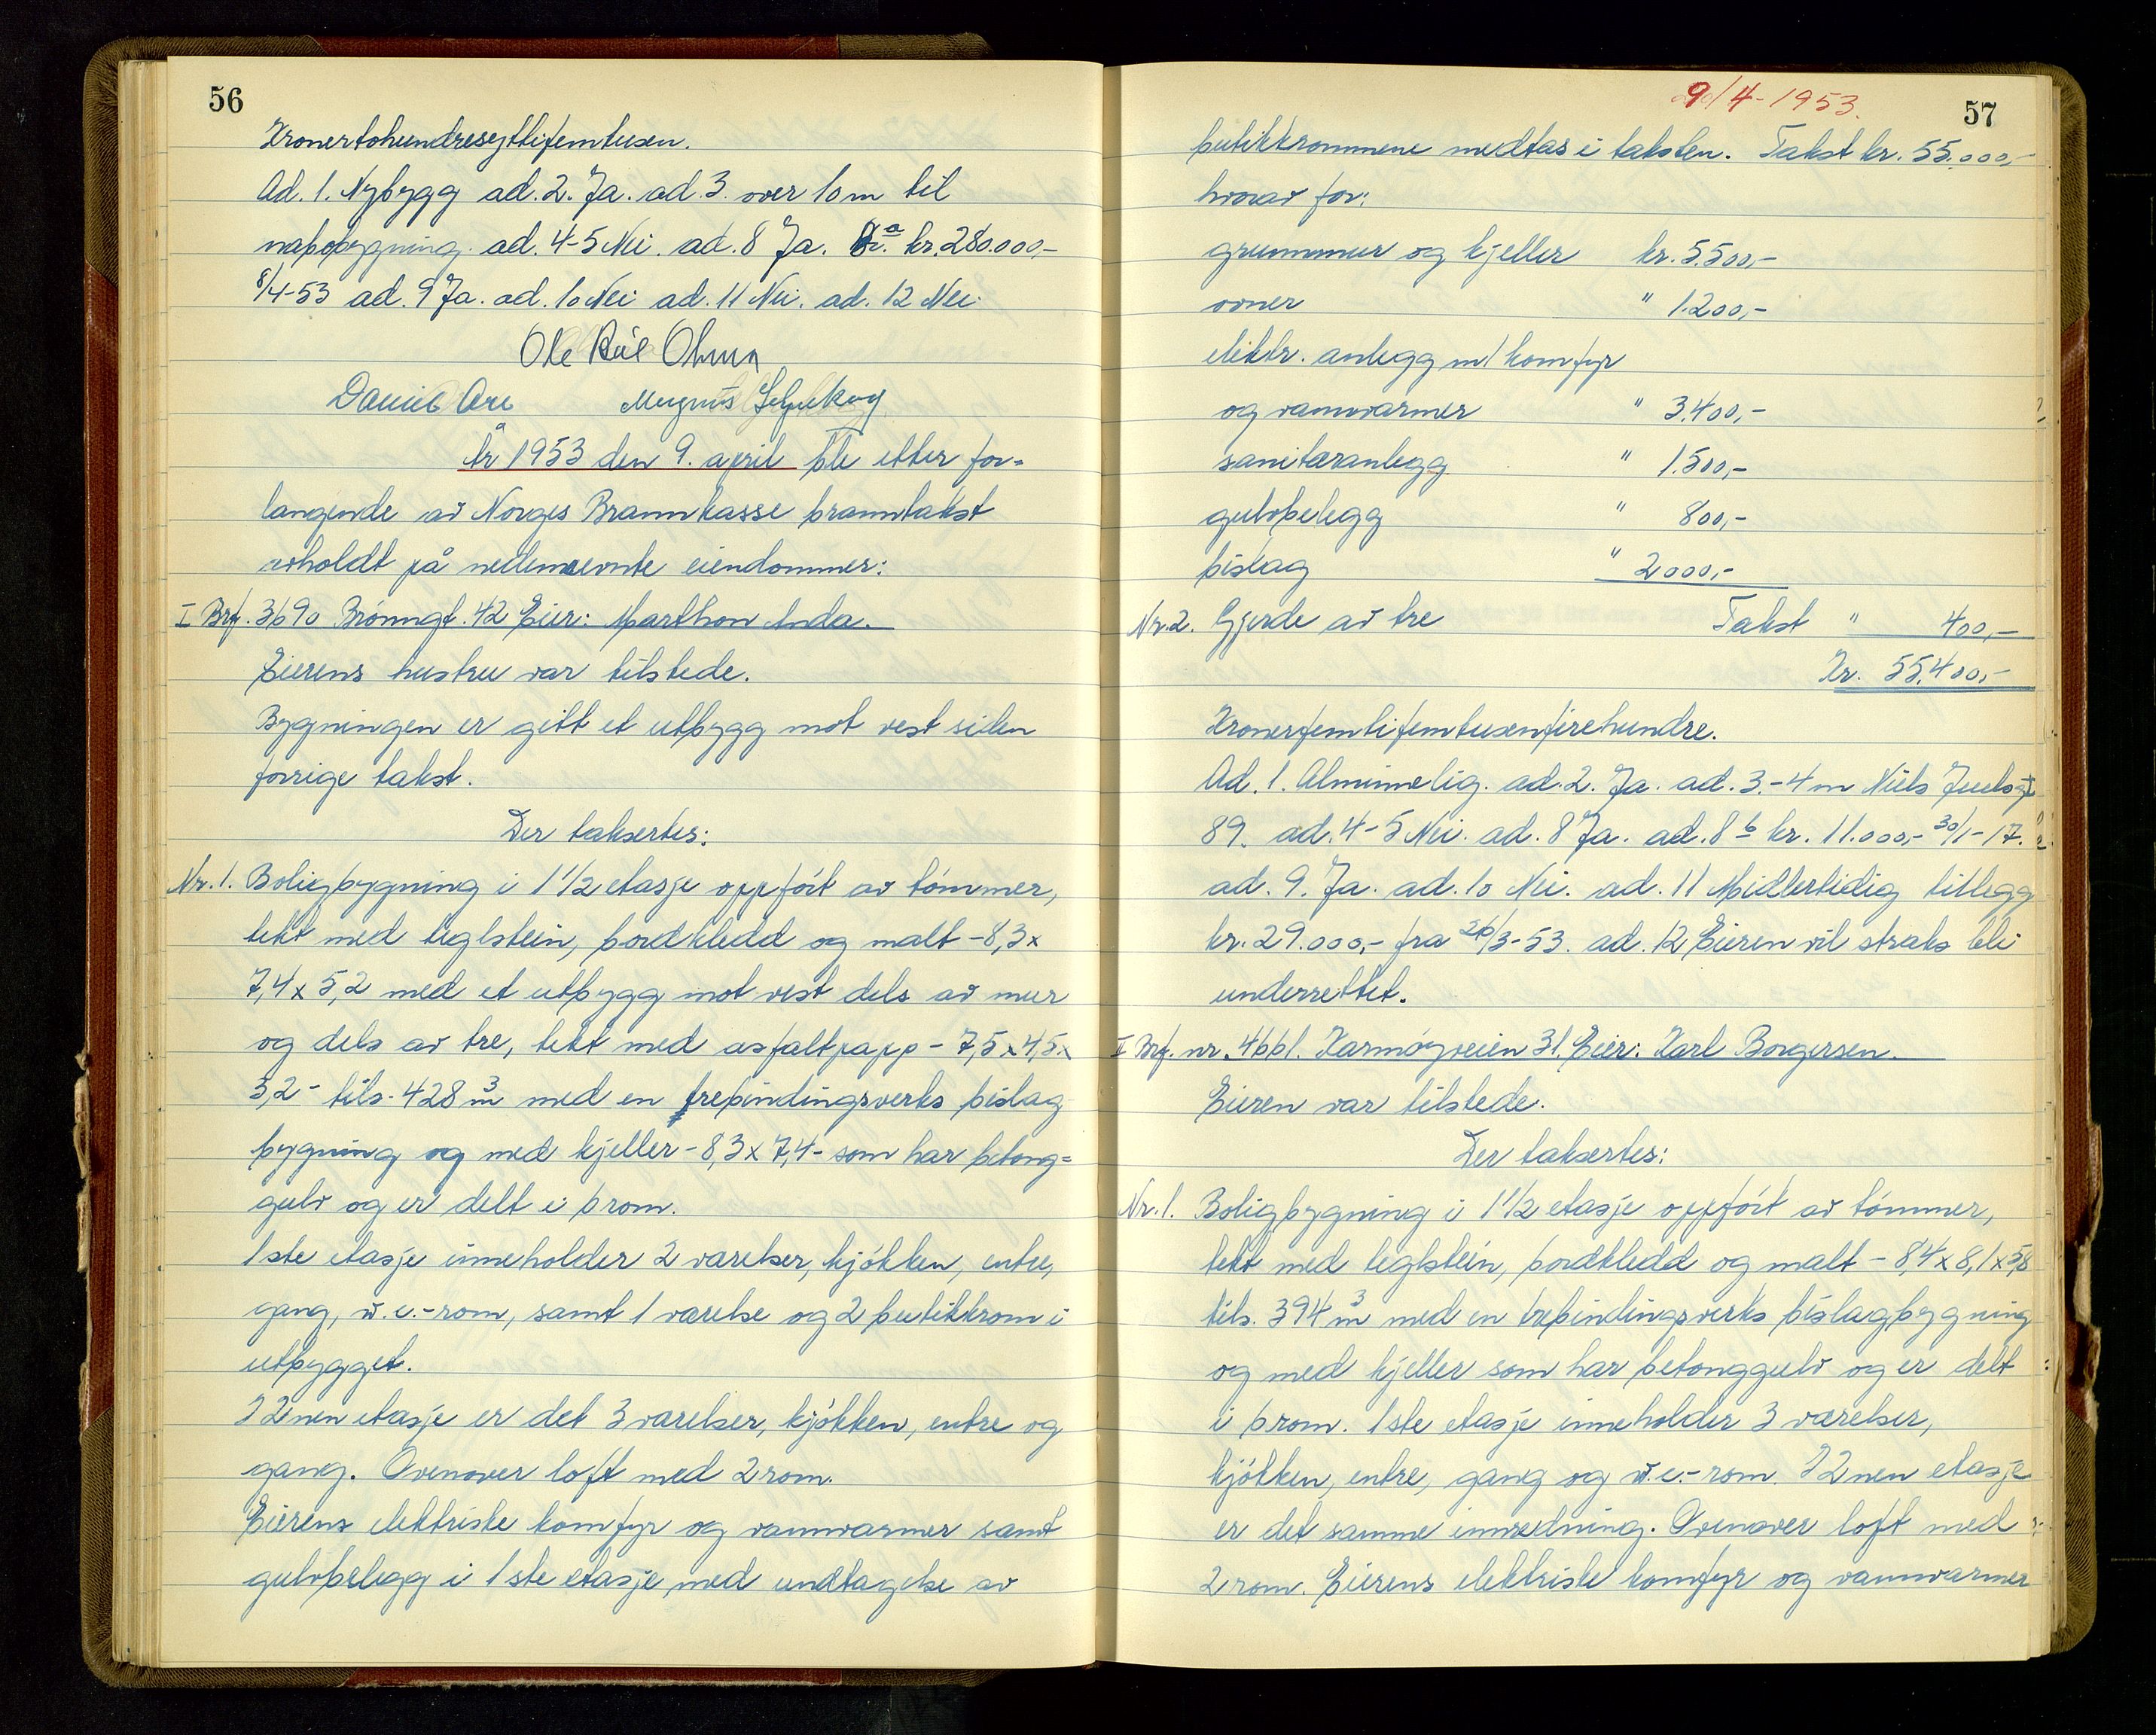 56
Kronertohundresyttifemtusen.
Ad. 1. Nybygg ad. 2. Ja. ad 3. over 10 m til
nabobygning. ad. 4-5 Nei. ad. 8 Ja. 8a. kr. 280.000,-
8/4-53 ad. 9 Ja. ad. 10 Nei ad. 11 Nei. ad. 12 Nei.
Ole
Magnus
År 1953 den 9. april ble etter for-
langende av Norges Brannkasse branntakst
avholdt på nedennevnte eiendommer:
I Brf. 3690 Brønngt. 42 Eier: Marthon Anda.
Eierens hustru var tilstede.
Bygningen er gitt et utbygg mot vest siden
forrige takst.
Der taksertes:
Nr. 1. Boligbygning i 1 1/2 etasje oppført av tømmer,
tekt med teglstein, bordkledd og malt - 8,3 x
7,4 x 5,2 med et utbygg mot vest dels av mur
og dels av tre, tekt med asfaltpapp - 7,5 x 4,5 x
3,2 - tils. 428 m3 med en trebindingsverks bislag
bygning og med kjeller - 8,3 x 7,4 - som har betong=
gulv og er delt i brom.
1ste etasje inneholder 2 værelser, kjøkken, entre,
gang, w.c.-rom, samt 1 værelse og 2 butikkrom i
utbygget.
I 2nen etasje er det 3 værelser, kjøkken, entre og
gang. Ovenover loft med 2 rom.
Eierens elektriske komfyr og vannvarmer samt
gulvbelegg i 1ste etasje med undtagelse av
9/4-1953.
57
butikkrommene medtas i taksten. Takst kr. 55.000,-
hvorav for:
grunnmur og kjeller kr. 5.500,-
ovner " 1.200,-
elektr. anlegg m/ komfyr
og vannvarmer " 3.400,-
sanitæranlegg " 1.500,-
gulvbelegg " 800,-
bislag " 2000,-
Nr. 2. Gjerde av tre Takst " 400,-
Kr. 55.400,-
Kronerfemtifemtusenfirehundre.
Ad. 1. Alminnelig. ad. 2. Ja. ad. 3.- 4 m Niels Juelsgt
89. ad. 4-5 Nei. ad. 8 Ja. ad. 8 b kr. 11.000,- 30/1-17.
ad. 9. Ja. ad. 10 Nei. ad. 11 Midlertidig tillegg
kr. 29.000,- fra 26/3-53. ad. 12 Eieren vil straks bli
underrettet.
II Brf. nr. 4661. Karmøyveien 31. Eier: Karl Borgersen.
Eieren var tilstede.
Der taksertes:
Nr. 1. Boligbygning i 1 1/2 etasje oppført av tømmer,
tekt med teglstein, bordkledd og malt - 8,4 x 8,1 x 5,8
tils. 394 m3 med en trebindingsverks bislagbygning
og med kjeller som har betonggulv og er delt
i brom. 1ste etasje inneholder 3 værelser,
kjøkken, entre, gang og w.c.-rom. I 2nen etasje
er det samme innredning. Ovenover loft med
2 rom. Eierens elektriske komfyr og vannvarmer